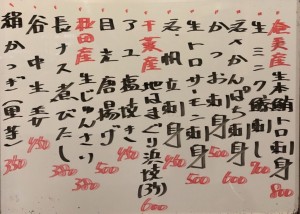 奄美産 生本鮪トロ刺身 800
生ミンク鯨刺し 900
石さかんぱち刺身 600
かつお刺身 500
生トロサーモン刺身 500
石帆立刺身 450
千葉産 地はまぐり浜焼(3ケ) 600
マユ塩焼き 450
目光唐揚げ 500
秋田産 生じゅんさい 380
長ナス煮びたし 380
谷中生姜 450
絹かつぎ(里芋) 350